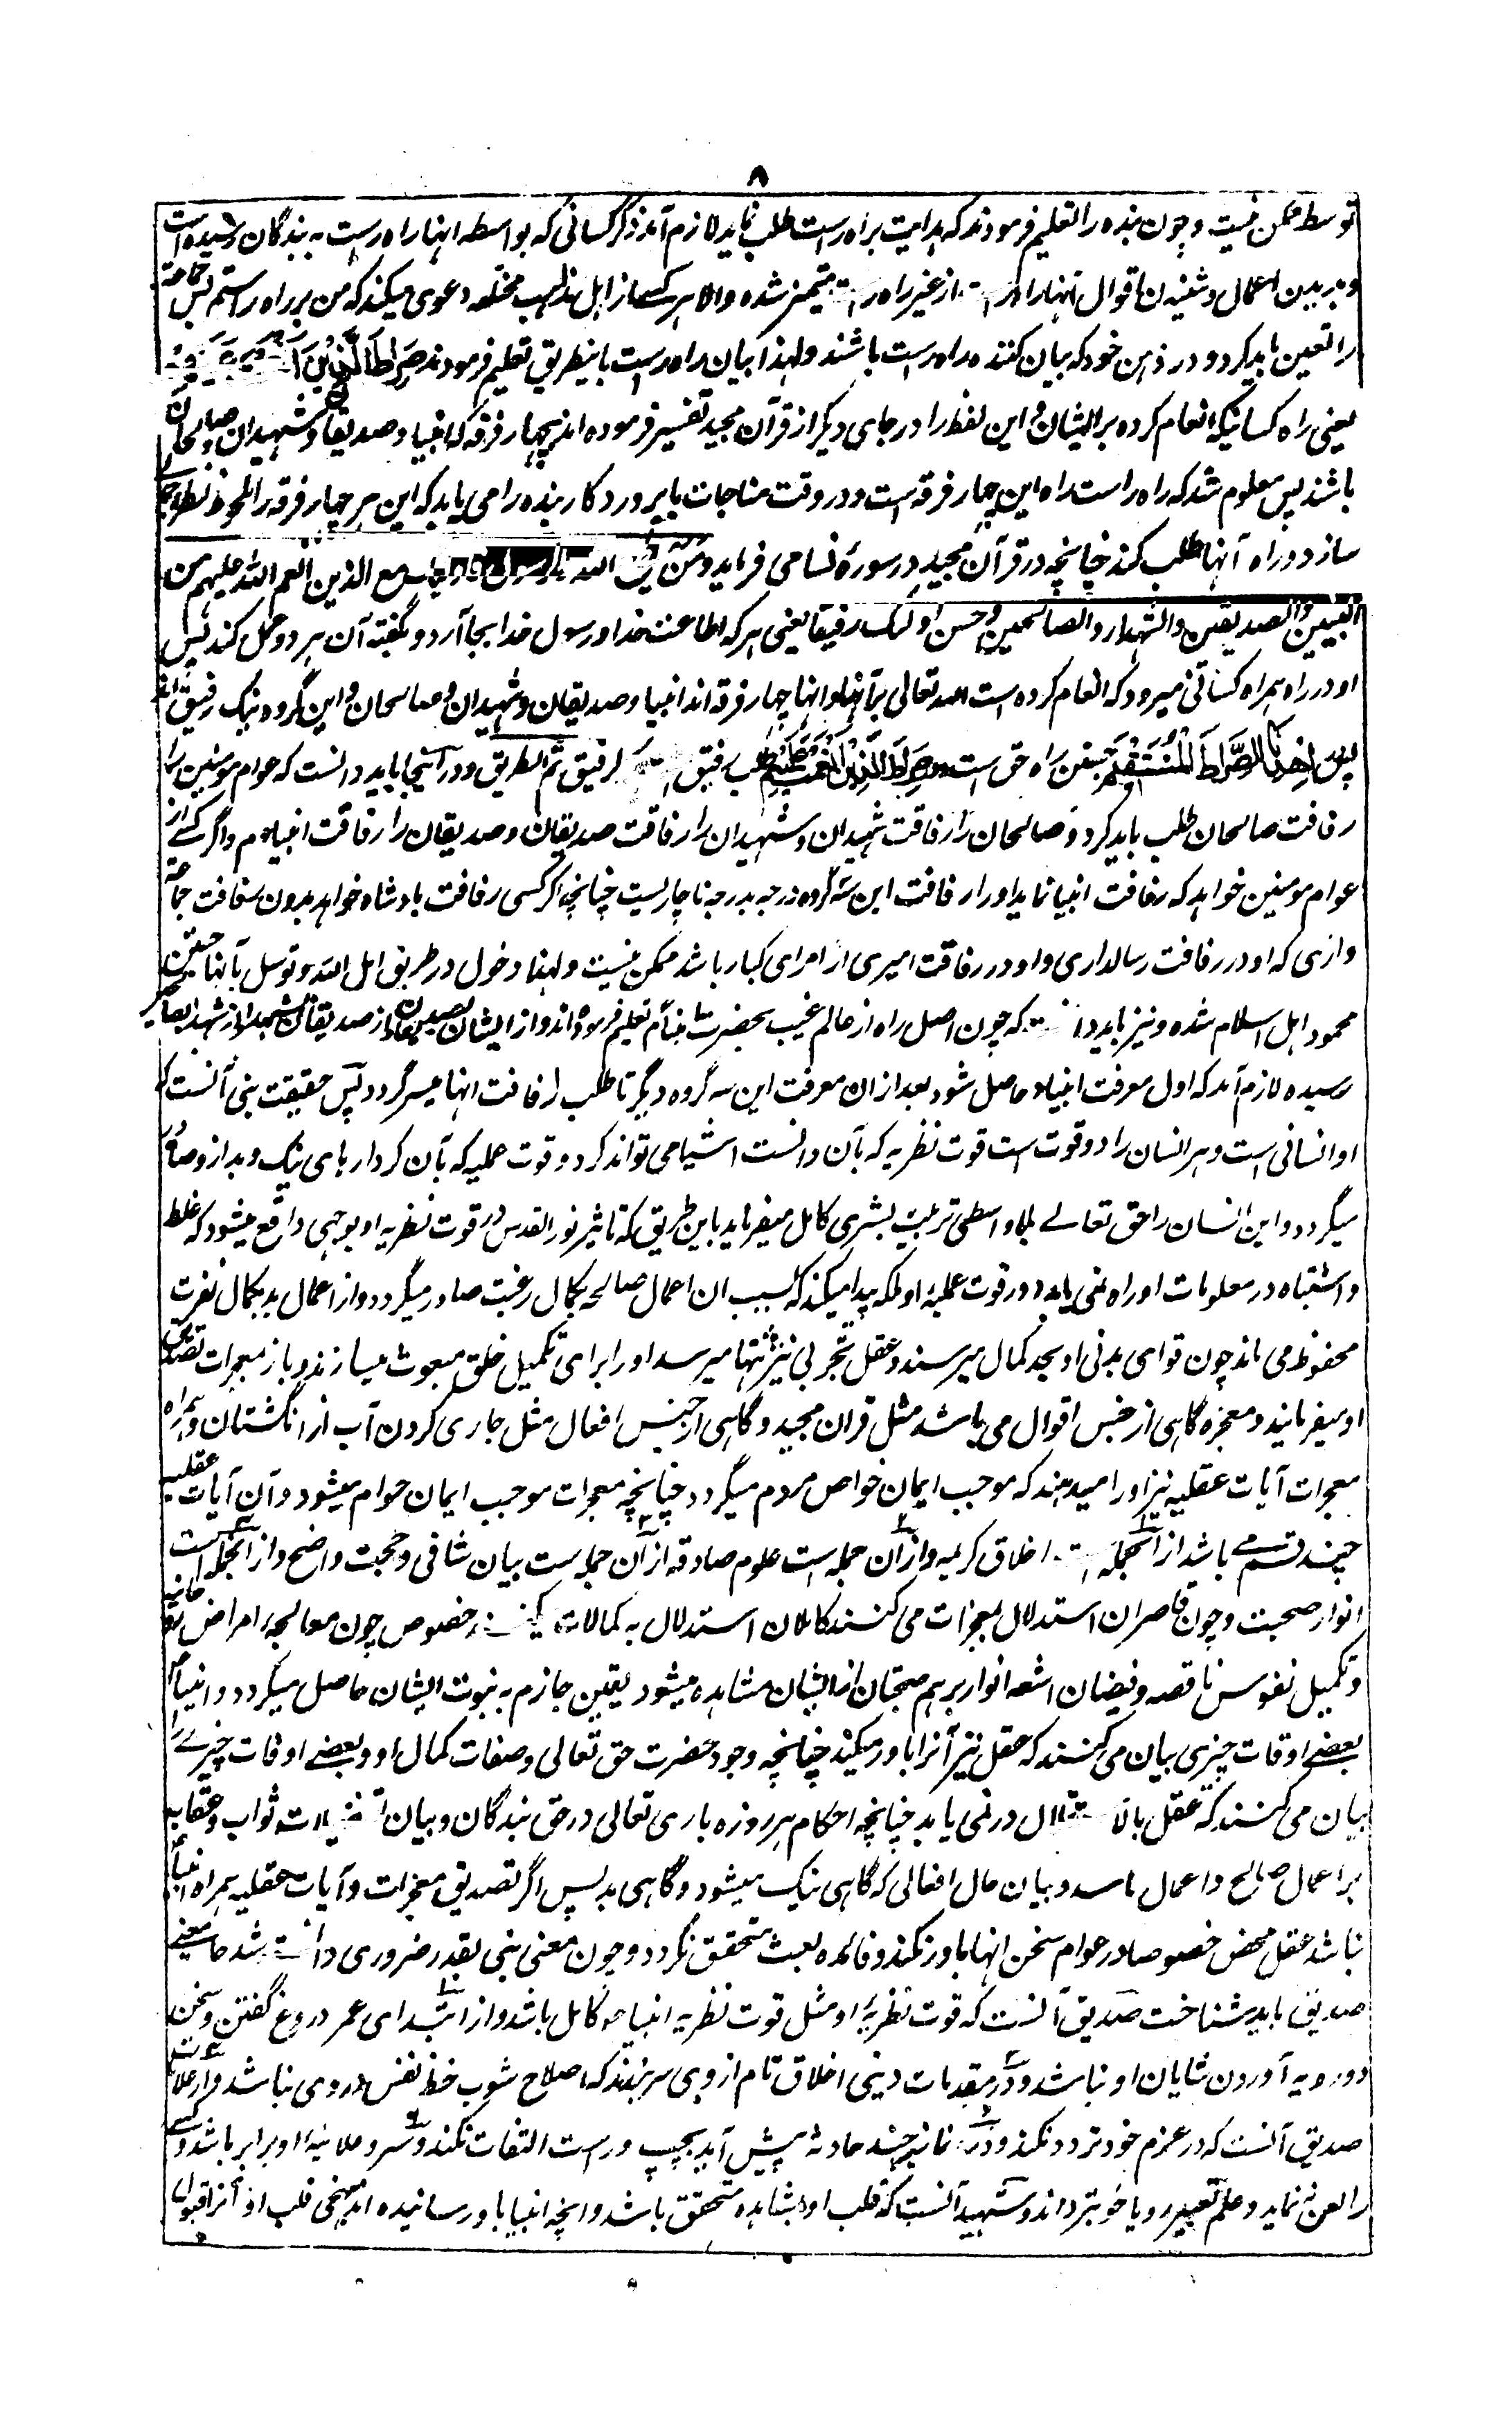 ۸
توسط ممکن نیست و چون بنده را تعلیم فرمودند که هدایت براه راست طلب نماید لازم آمد ذکر کسانی که بواسطه انها راه راست به بندگان رسیده است
و بدیدن اعمال و شنیدن اقوال انها راه راست از غیر راه راست متمیز شده والا هر کسے از اهل مذاهب مختلفه دعوی میکند که من بر راه راستم پس جماعة
را تعین باید کرد و در ذهن خود که بیان کننده راه راست باشند و لهذا بیان راه راست باینطریق تعلیم فرمودند صِرَاطَ الَّذِیْنَ
یعنی راه کسانیکه انعام کرده بر ایشان و این لفظ را در جای دیگر از قرآن مجید تفسیر فرموده اند بچهار فرقه که انبیا و صدیقان و شهیدان و صالحان
باشند پس معلوم شد که راه راست راه این چهار فرقه است و در وقت مناجات با پروردگار بنده را می باید که این هر چهار فرقه را ملحوظ نظر
سازد و راه آنها طلب کند چنانچه در قرآن مجید در سورۂ نسا می فرماید وَمَنْ الله مع الذین انعم الله علیهم من
النبیین والصدیقین والشهداء والصالحین وحسن اولئک رفیقا یعنی هر که اطاعت خدا و رسول خدا بجا آرد و بگفته آن هر دو عمل کند پس
او در راه همراه کسانی میرود که انعام کرده است الله تعالی بر آنها و انها چهار فرقه اند انبیا و صدیقان و شهیدان و صالحان و این گروه نیک رفیق اند
پس اِهْدِنَا الصِّرَاطَ الْمُسْتَقِیْمَ راه حق است و صِرَاطَ الَّذِیْنَ اَنْعَمْتَ عَلَیْهِمْ طلب رفیق الرفیق ثم الطریق و در اینجا باید دانست که عوام مومنین را
رفاقت صالحان طلب باید کرد و صالحان را رفاقت شهیدان و شهیدان را رفاقت صدیقان و صدیقان را رفاقت انبیاء و اگر کسے از
عوام مومنین خواهد که رفاقت انبیا نماید او را رفاقت این سه گروه درجه بدرجه ناچاریست چنانچه اگر کسی رفاقت بادشاه خواهد بدون رفاقت جماعة
داری که او در رفاقت رسالداری و او در رفاقت امیری از امرای کبار باشد ممکن نیست و لهذا دخول در طریق اهل الله و توسل بآنها جستن
محمود اهل اسلام شده و نیز باید دانست که چون اصل راه از عالم غیب بحضرت انبیا تعلیم فرموده اند و از ایشان بصدیقان و از صدیقان بشهدا و از شهدا بصالحین
رسیده لازم آمد که اول معرفت انبیاء حاصل شود بعد از ان معرفت این سه گروه دیگر تا طلب رفاقت انها میسر گردد پس حقیقت نبی آنست که
او انسانی است و هر انسان را دو قوت است قوت نظریه که بآن دانست اشیا می تواند کرد و قوت عملیه که بآن کردارهای نیک و بد از و صادر
میگردد و این انسان را حق تعالے بلا واسطی تربیت بشری کامل میفرماید باین طریق که تاثیر نور القدس در قوت نظریه او بوجهی واقع میشود که غلط
و اشتباه در معلومات او راه نمی یابد و در قوت عملیۂ او ملکه پیدا میکند که بسبب ان اعمال صالحه بکمال رغبت صادر میگردد و از اعمال بد بکمال نفرت
محفوظ می ماند چون قوای بدنی او بحد کمال میرسند و عقل تجربی نیز بنهایت میرسد او را برای تکمیل خلق مبعوث میسازند و باز معجزات تصدیق
او میفرمایند و معجزه گاهی از جنس اقوال می باشد مثل قران مجید و گاهی از جنس افعال مثل جاری کردن آب از انگشتان و همراه
معجزات آیات عقلیه نیز او را میدهند که موجب ایمان خواص مردم میگردد چنانچه معجزات موجب ایمان عوام میشود و آن آیات عقلیه
چند قسم مے باشد از آنجمله است اخلاق کریمه و از آن جمله است علوم صادقه از آن جمله است بیان شافی و حجت واضح و از آنجمله است
انوار صحبت و چون قاصران استدلال بمعجزات می کنند کاملان استدلال به کمالات خصوص چون معالجه امراض
و تکمیل نفوس ناقصه و فیضان اشعه انوار بر هم صحبتان از ایشان مشاهده میشود یقین جازم به نبوت ایشان حاصل میگردد و انبیاء
بعضے اوقات چیزی بیان می کنند که عقل نیز آنرا باور میکند چنانچه وجود حضرت حق تعالی و صفات کمال او و بعضے اوقات چیزے
بیان می کنند که عقل بالاستقلال در نمی یابد چنانچه احکام هر روزه باری تعالی در حق بندگان و بیان ثواب و عقاب
بر اعمال صالح و اعمال فاسد و بیان حال افعالی که گاهی نیک میشود و گاهی بد پس اگر تصدیق معجزات و آیات عقلیه همراه انبیا
نباشد عقل محض خصوصا در عوام سخن انها باور نکند و فائده بعثت متحقق نگردد و چون معنی نبی بقدر ضروری دانسته شد حالا معنے
صدیق باید شناخت صدیق آنست که قوت نظریۂ او مثل قوت نظریه انبیاء کامل باشد و از ابتدای عمر دروغ گفتن و سخن
دو رویه آوردن شایان او نباشد و در مقدمات دینی اخلاق تام از وی سر بزند که اصلا شوب حظ نفس در وی نباشد و از علامات
صدیق آنست که در عزم خود تردد نکند و در نماز هر چند حادثه پیش آید بچپ و راست التفات نکند و سر و علانیۂ او برابر باشد و کسے
را لعن ننماید و علم تعبیر رویا خوب تر داند و شهید آنست که قلب او بمشاهده متحقق باشد و انچه انبیا باو رسانیده اند بنهجی قلب او آنرا قبول